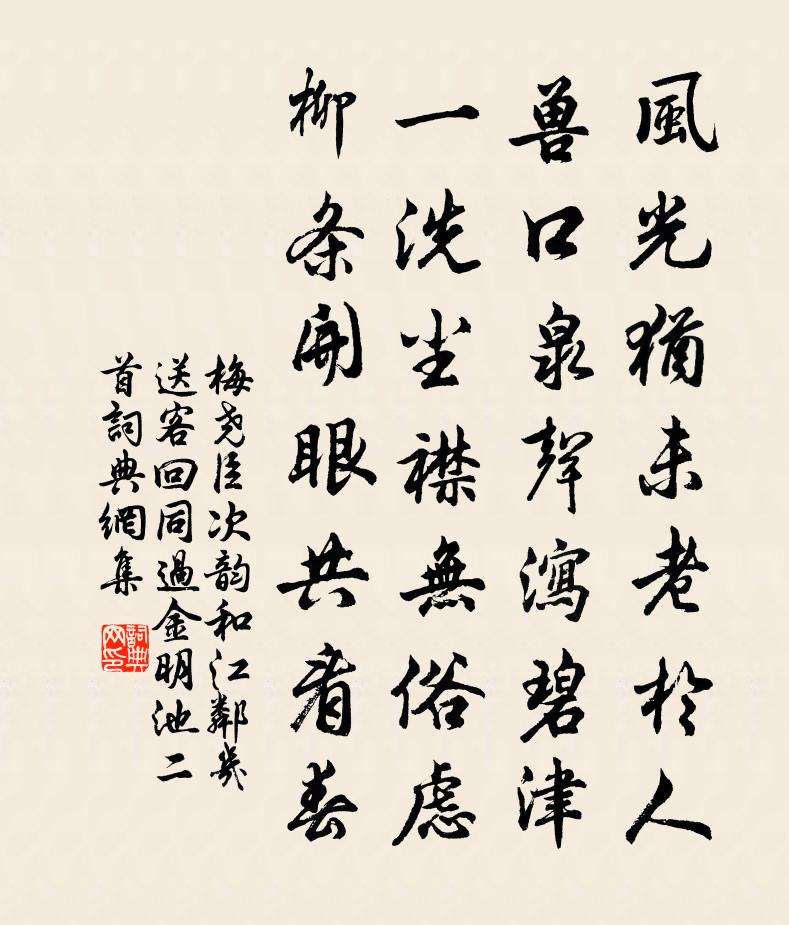 風光猶未老於人
兽口泉聲瀉碧津
一洗尘襟無俗慮
柳条開眼共看春
梅尧臣次韵和江鄰幾
送客回同過金明池二
首詞典網集
詞典
网印